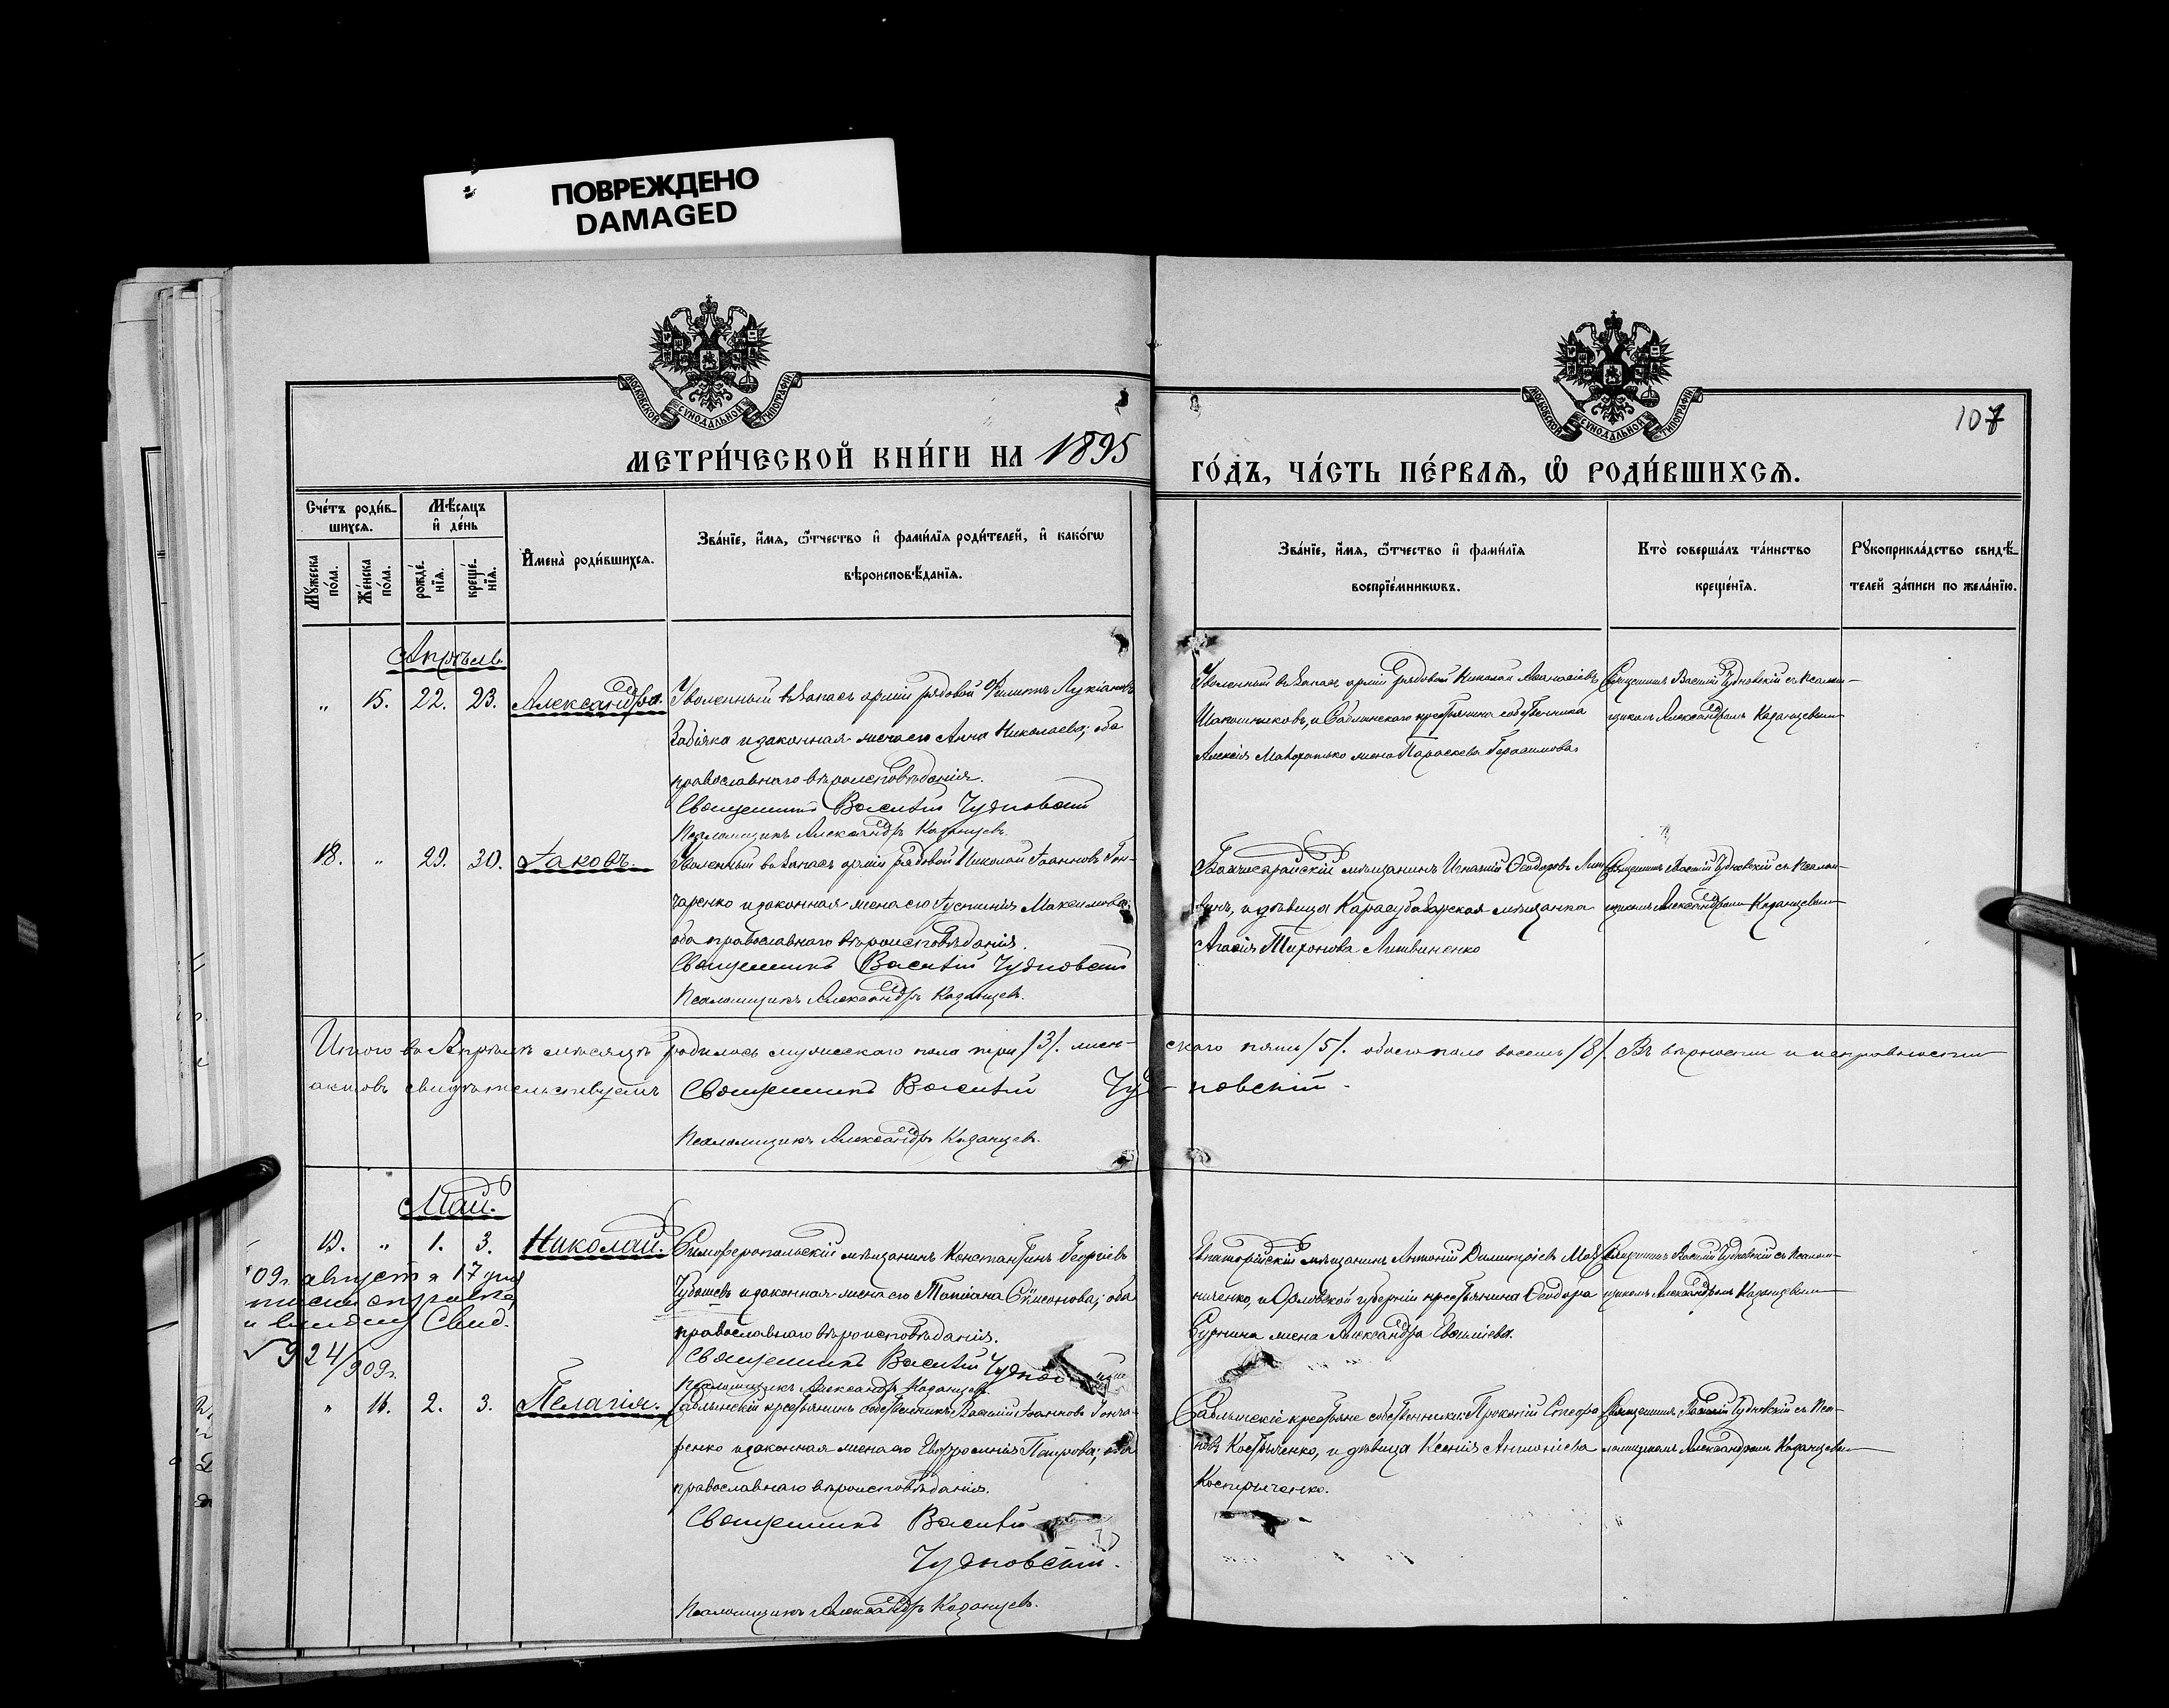 ПОВРЕЖДЕНО
DAMAGED
МОСКОВСКОЙ СѴНОДАЛЬНОЙ ТИПОГРАФІИ
МОСКОВСКОЙ СѴНОДАЛЬНОЙ ТИПОГРАФІИ
107
МЕТРИ́ЧЕСКОЙ КНИ́ГИ НА 1895
ГО́ДЪ, ЧА́СТЬ ПЕ́РВАѦ, Ѡ҆ РОДИ́ВШИХСѦ.
Сче́тъ роди́в-
шихсѧ.
Мѣ́сѧцъ
и҆ де́нь
Мꙋ́жеска по́ла.
Же́нска по́ла.
рожде́нїѧ.
креще́нїѧ.
И҆мена̀ роди́вшихсѧ.
Зва́нїе, и҆́мѧ, ѻ҆́тчество и҆ фами́лїѧ роди́телей, и҆ како́гѡ
вѣроисповѣ́данїѧ.
Зва́нїе, и҆́мѧ, ѻ҆́тчество и҆ фами́лїѧ
воспрїе́мникѡвъ.
Кто̀ соверша́лъ та́инство
креще́нїѧ.
Рꙋкоприкла́дство свидѣ́-
телей за́писи по жела́нїю.
Апрѣль.
„ 15. 22. 23. Александра.
Уволенный въ запасъ арміи рядовой Филиппъ Лукіановъ
Забіяка и законная жена его Анна Николаева; оба
православнаго вѣроисповѣданія.
Священникъ Василій Чудновскій
Псаломщикъ Александръ Казанцевъ.
Уволенный въ запасъ арміи рядовой Николай Аѳанасіевъ
Шапошниковъ, и Саблынскаго крестьянина собственника
Алексія жена Параскева Герасимова
Священникъ Василій Чудновскій съ псалом-
щикомъ Александромъ Казанцевымъ
18. „ 29. 30. Іаковъ.
Уволенный въ запасъ арміи рядовой Николай Іоанновъ Гон-
чаренко и законная жена его Іустинія Максимова;
оба православнаго вѣроисповѣданія.
Священникъ Василій Чудновскій
Псаломщикъ Александръ Казанцевъ.
Бахчисарайскій мѣщанинъ Игнатій Ѳеодоровъ
и дѣвица Карасубазарская мѣщанка
Агасія Тихонова Литвиненко
Священникъ Василій Чудновскій съ псалом-
щикомъ Александромъ Казанцевымъ
Итого въ Апрѣлѣ мѣсяцѣ родилось мужескаго пола три /3/. жен-
скаго пять /5/. обоего пола восемь /8/. Въ вѣрности и исправности
актовъ свидѣтельствуемъ Священникъ Василій Чуд-
новскій.
Псаломщикъ Александръ Казанцевъ.
Май.
19. „ 1. 3. Николай.
Симферопольскій мѣщанинъ Константинъ Георгіевъ
Чубашевъ и законная жена его Татіана Симеонова; оба
православнаго вѣроисповѣданія.
Священникъ Василій
Псаломщикъ Александръ Казанцевъ.
Евпаторійскій мѣщанинъ Антоній Димитріевъ
ниченко, и Орловской губерніи крестьянина Ѳеодора
жена Александра Евѳиміева.
Священникъ Василій Чудновскій съ псалом-
щикомъ Александромъ Казанцевымъ
09 г. августа 17 дня
справка
и Свид.
√ 924/909 г.
„ 16. 2. 3. Пелагія.
Саблынскій крестьянинъ собственникъ Василій Іоанновъ Гонча-
ренко и законная жена его Евфросинія Петрова; оба
православнаго вѣроисповѣданія.
Священникъ Василій
Чудновскій.
Псаломщикъ Александръ Казанцевъ.
Саблынскіе крестьяне собственники: Прокопій Стефа-
новъ Костриченко, и дѣвица Ксенія Антоніева
Костриченко.
Священникъ Василій Чудновскій съ пса-
ломщикомъ Александромъ Казанцевымъ